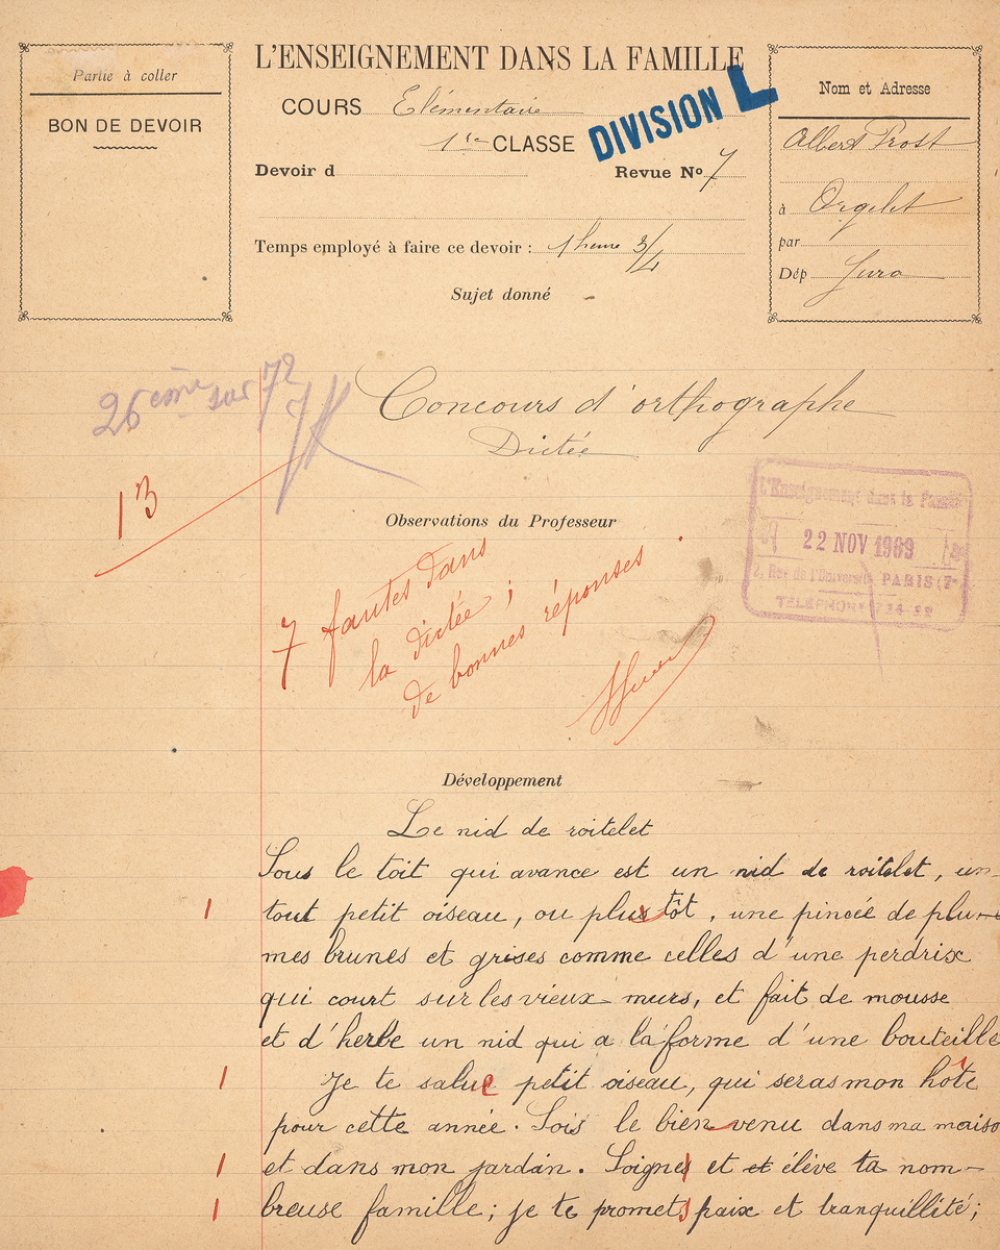 Partie à coller
BON DE DEVOIR
L'ENSEIGNEMENT DANS LA FAMILLE
COURS Elémentaire
1re CLASSE
DIVISION L
Devoir d
Revue No 7
Temps employé à faire ce devoir : 1 heure 3/4
Sujet donné
Nom et Adresse
Albert Prost
à Orgelet
par
Dép Jura
26ème sur 72
13
Concours d'orthographe
Dictée
Observations du Professeur
7 fautes dans
la dictée ;
de bonnes réponses
L'Enseignement dans la Famille
22 NOV 1909
2, Rue de l'Université, PARIS (7e
TÉLÉPHONE 734-
Développement
Le nid de roitelet
Sous le toit qui avance est un nid de roitelet, un
tout petit oiseau, ou plus tôt, une pincée de plu-
mes brunes et grises comme celles d'une perdrix
qui court sur les vieux murs, et fait de mousse
et d'herbe un nid qui a la forme d'une bouteille
Je te salue petit oiseau, qui seras mon hôte
pour cette année. Sois le bien venu dans ma maiso
et dans mon jardin. Soigne et et élève ta nom-
breuse famille ; je te promets paix et tranquillité ;